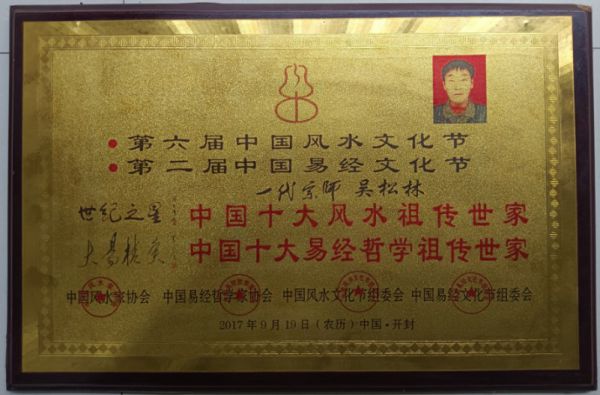 • 第六届中国风水文化节
• 第二届中国易经文化节
一代宗师 吴松林
世纪之星
中国十大风水祖传世家
中国十大易经哲学祖传世家
中国风水家协会 中国易经哲学家协会 中国风水文化节组委会 中国易经文化节组委会
2017年9月19日（农历）中国·开封